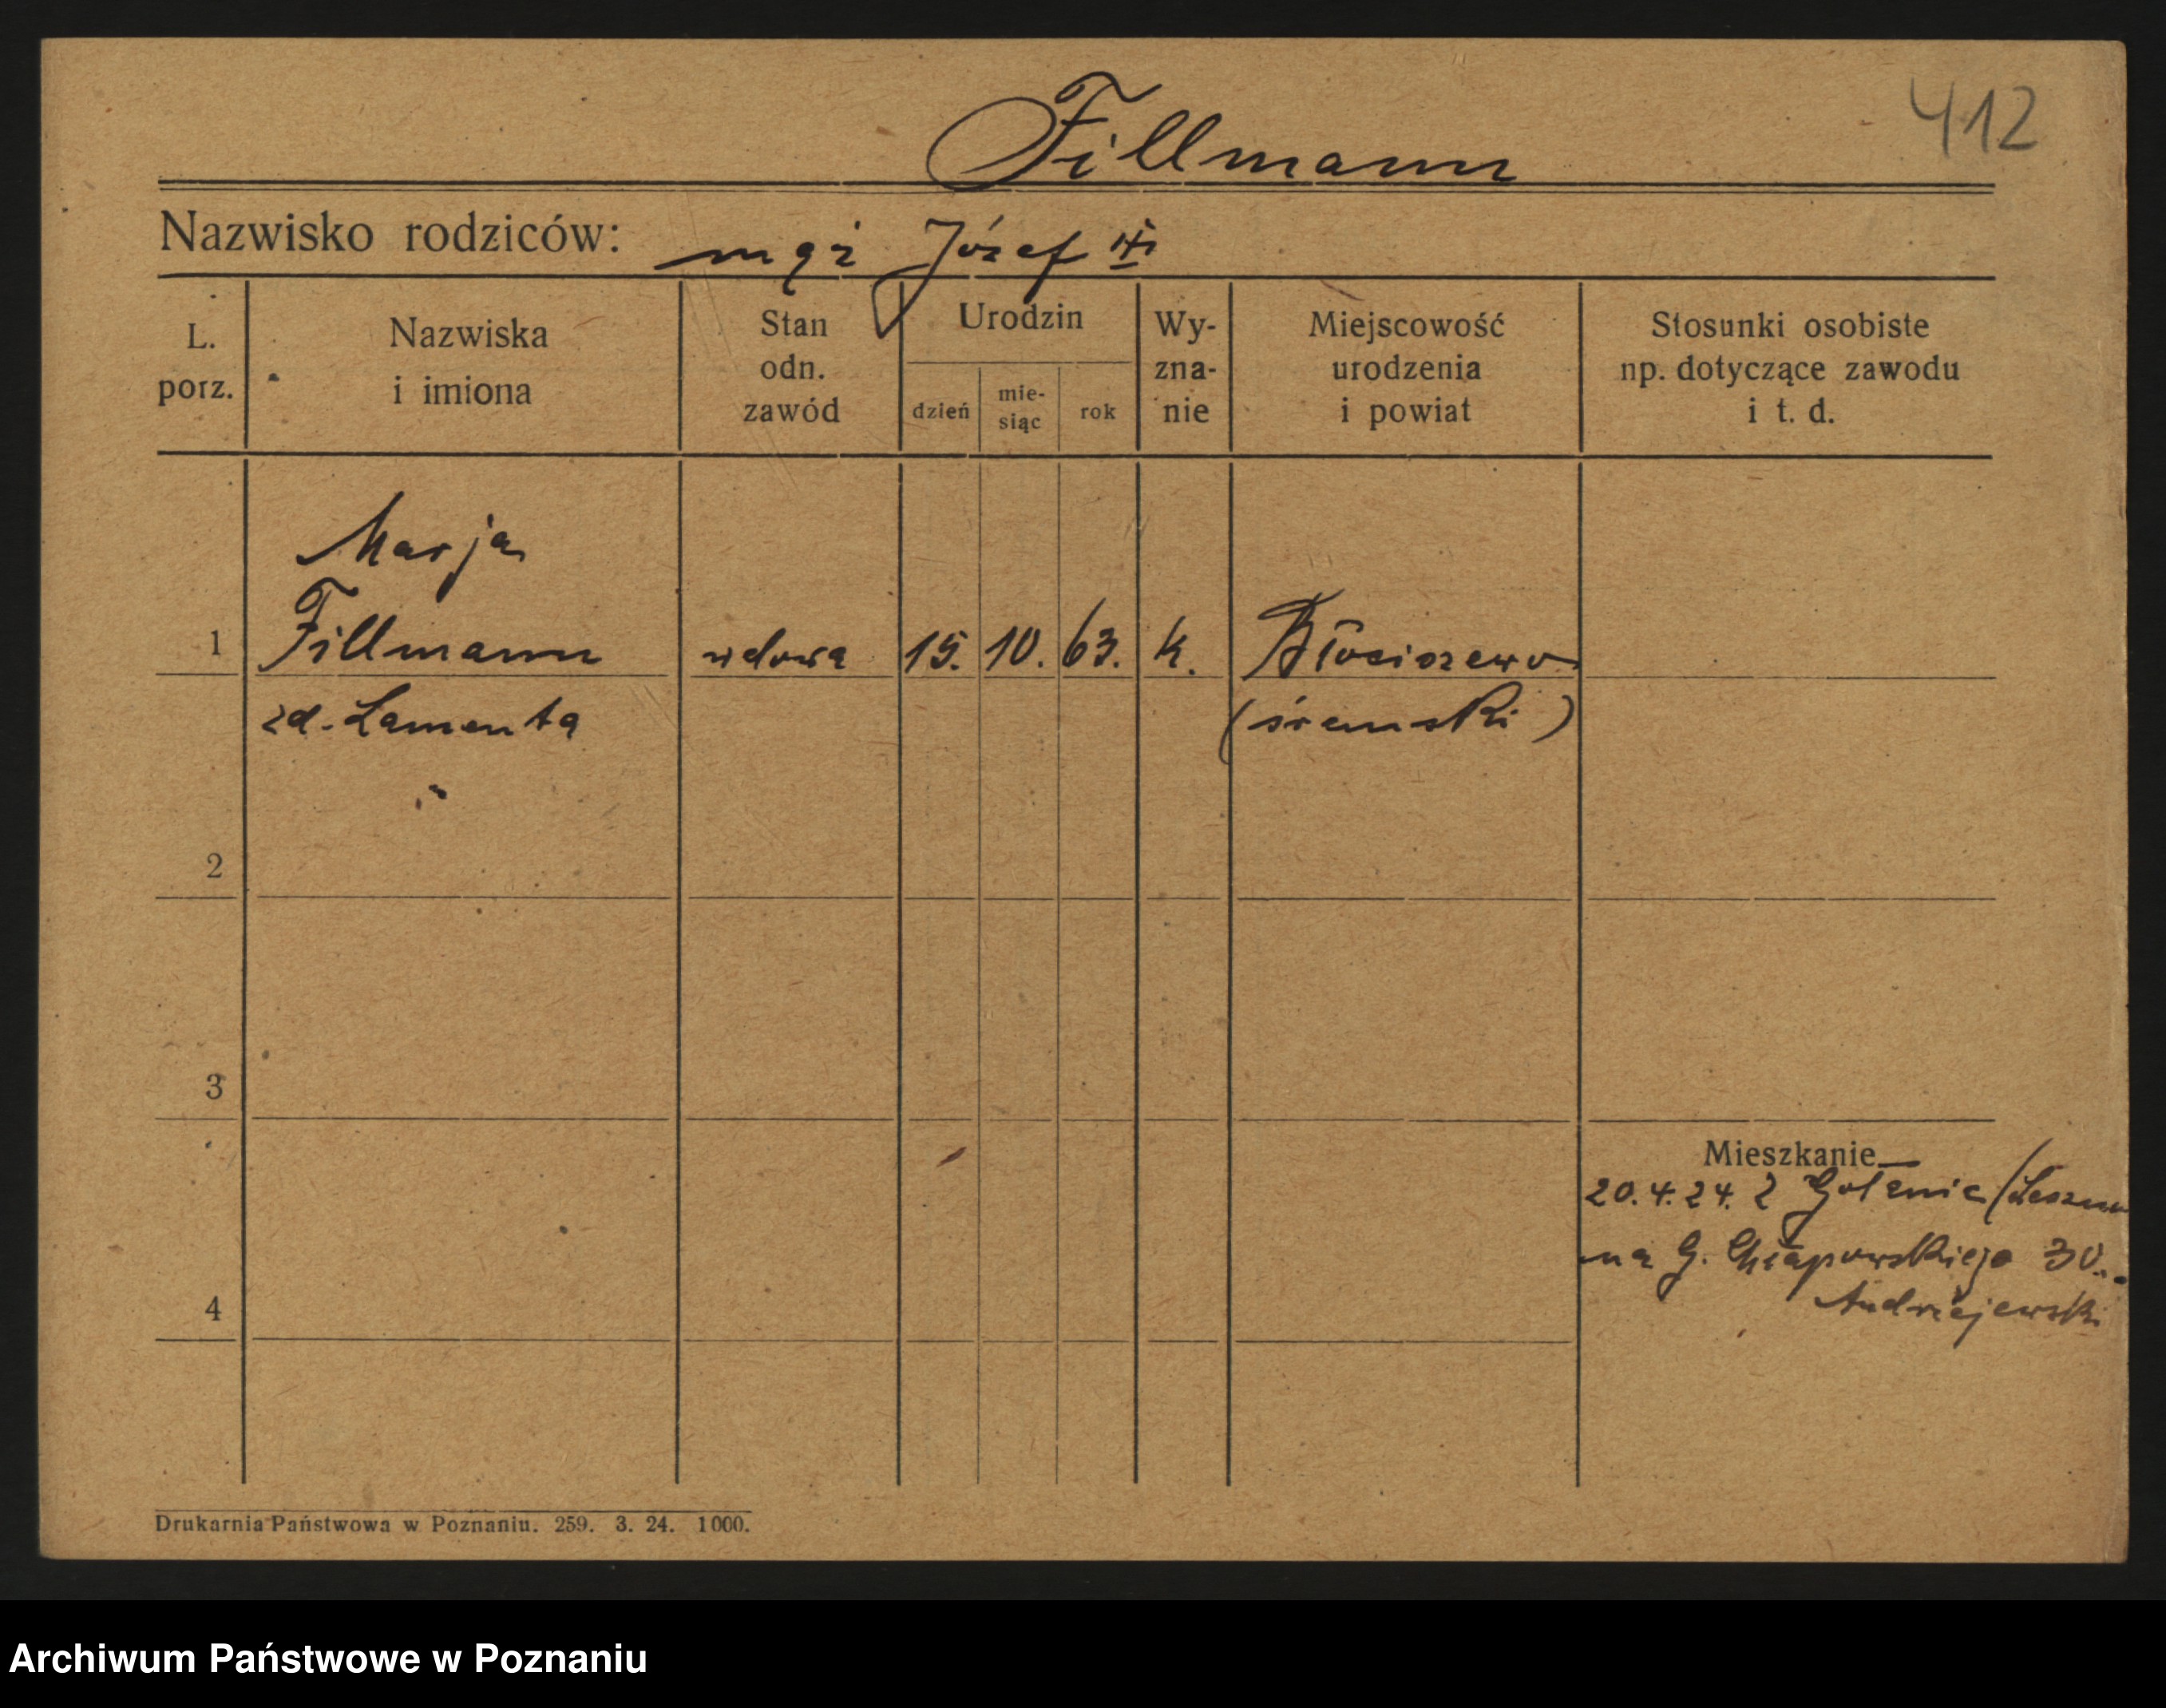 412
Fillmann
Nazwisko rodziców: mąż Józef
L. porz.
Nazwiska i imiona
Stan odn. zawód
Urodzin
dzień
mie-siąc
rok
Wy-zna-nie
Miejscowość urodzenia i powiat
Stosunki osobiste np. dotyczące zawodu i t. d.
Marja
1 Fillmann wdowa 15. 10. 63. k. Włościszewo
zd. Lamenta (śremski)
2
3
Mieszkanie
20.4.24. z
na G. Chłapowskiego 30
Andrzejewski
4
Drukarnia Państwowa w Poznaniu. 259. 3. 24. 1000.
Archiwum Państwowe w Poznaniu